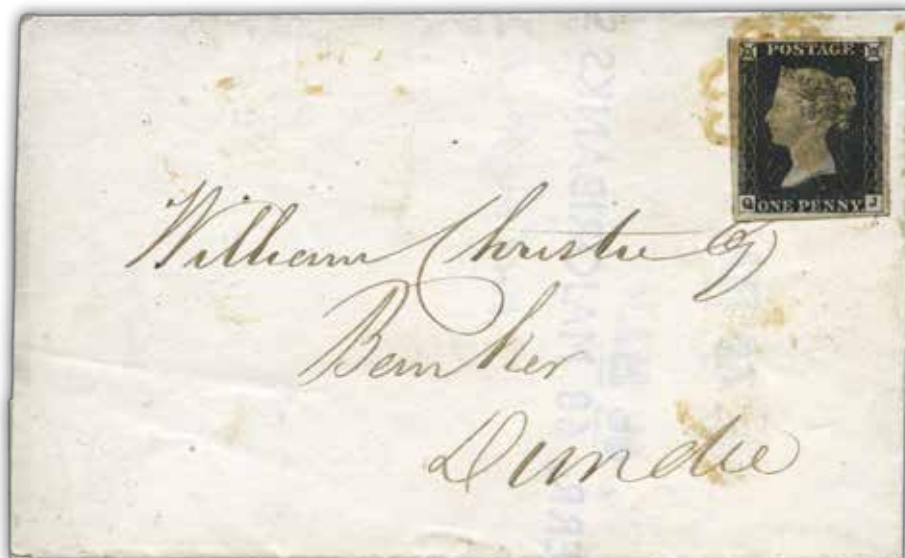 POSTAGE
Q J
ONE PENNY
William Christie Esq
Banker
Dundee